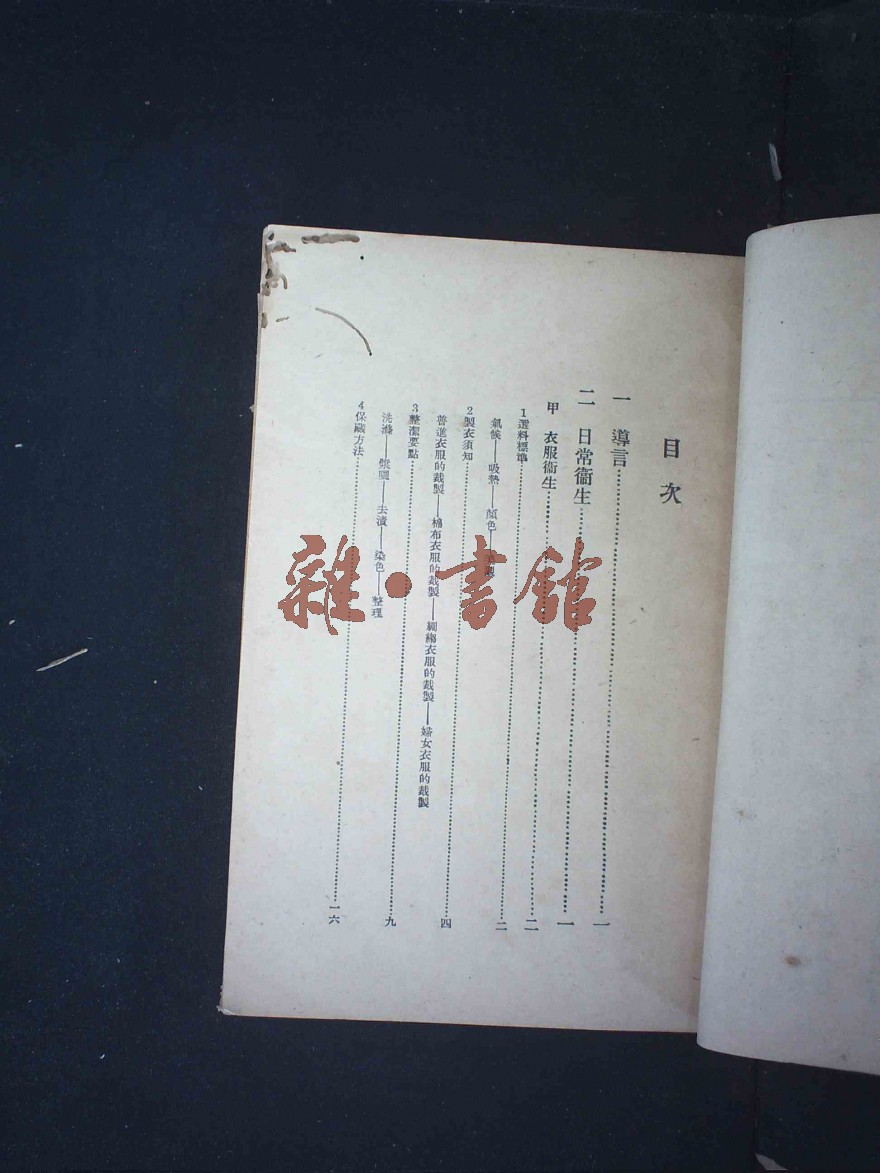 目次
一 導言……一
二 日常衛生……一
甲 衣服衛生……二
1 選料標準……二
氣候——吸熱——顏色——
2 製衣須知……四
普通衣服的裁製——棉布衣服的裁製——綢縐衣服的裁製——婦女衣服的裁製
3 整潔要點……九
洗滌——漿曬——去漬——染色——整理
4 保藏方法……一六
雜·書館